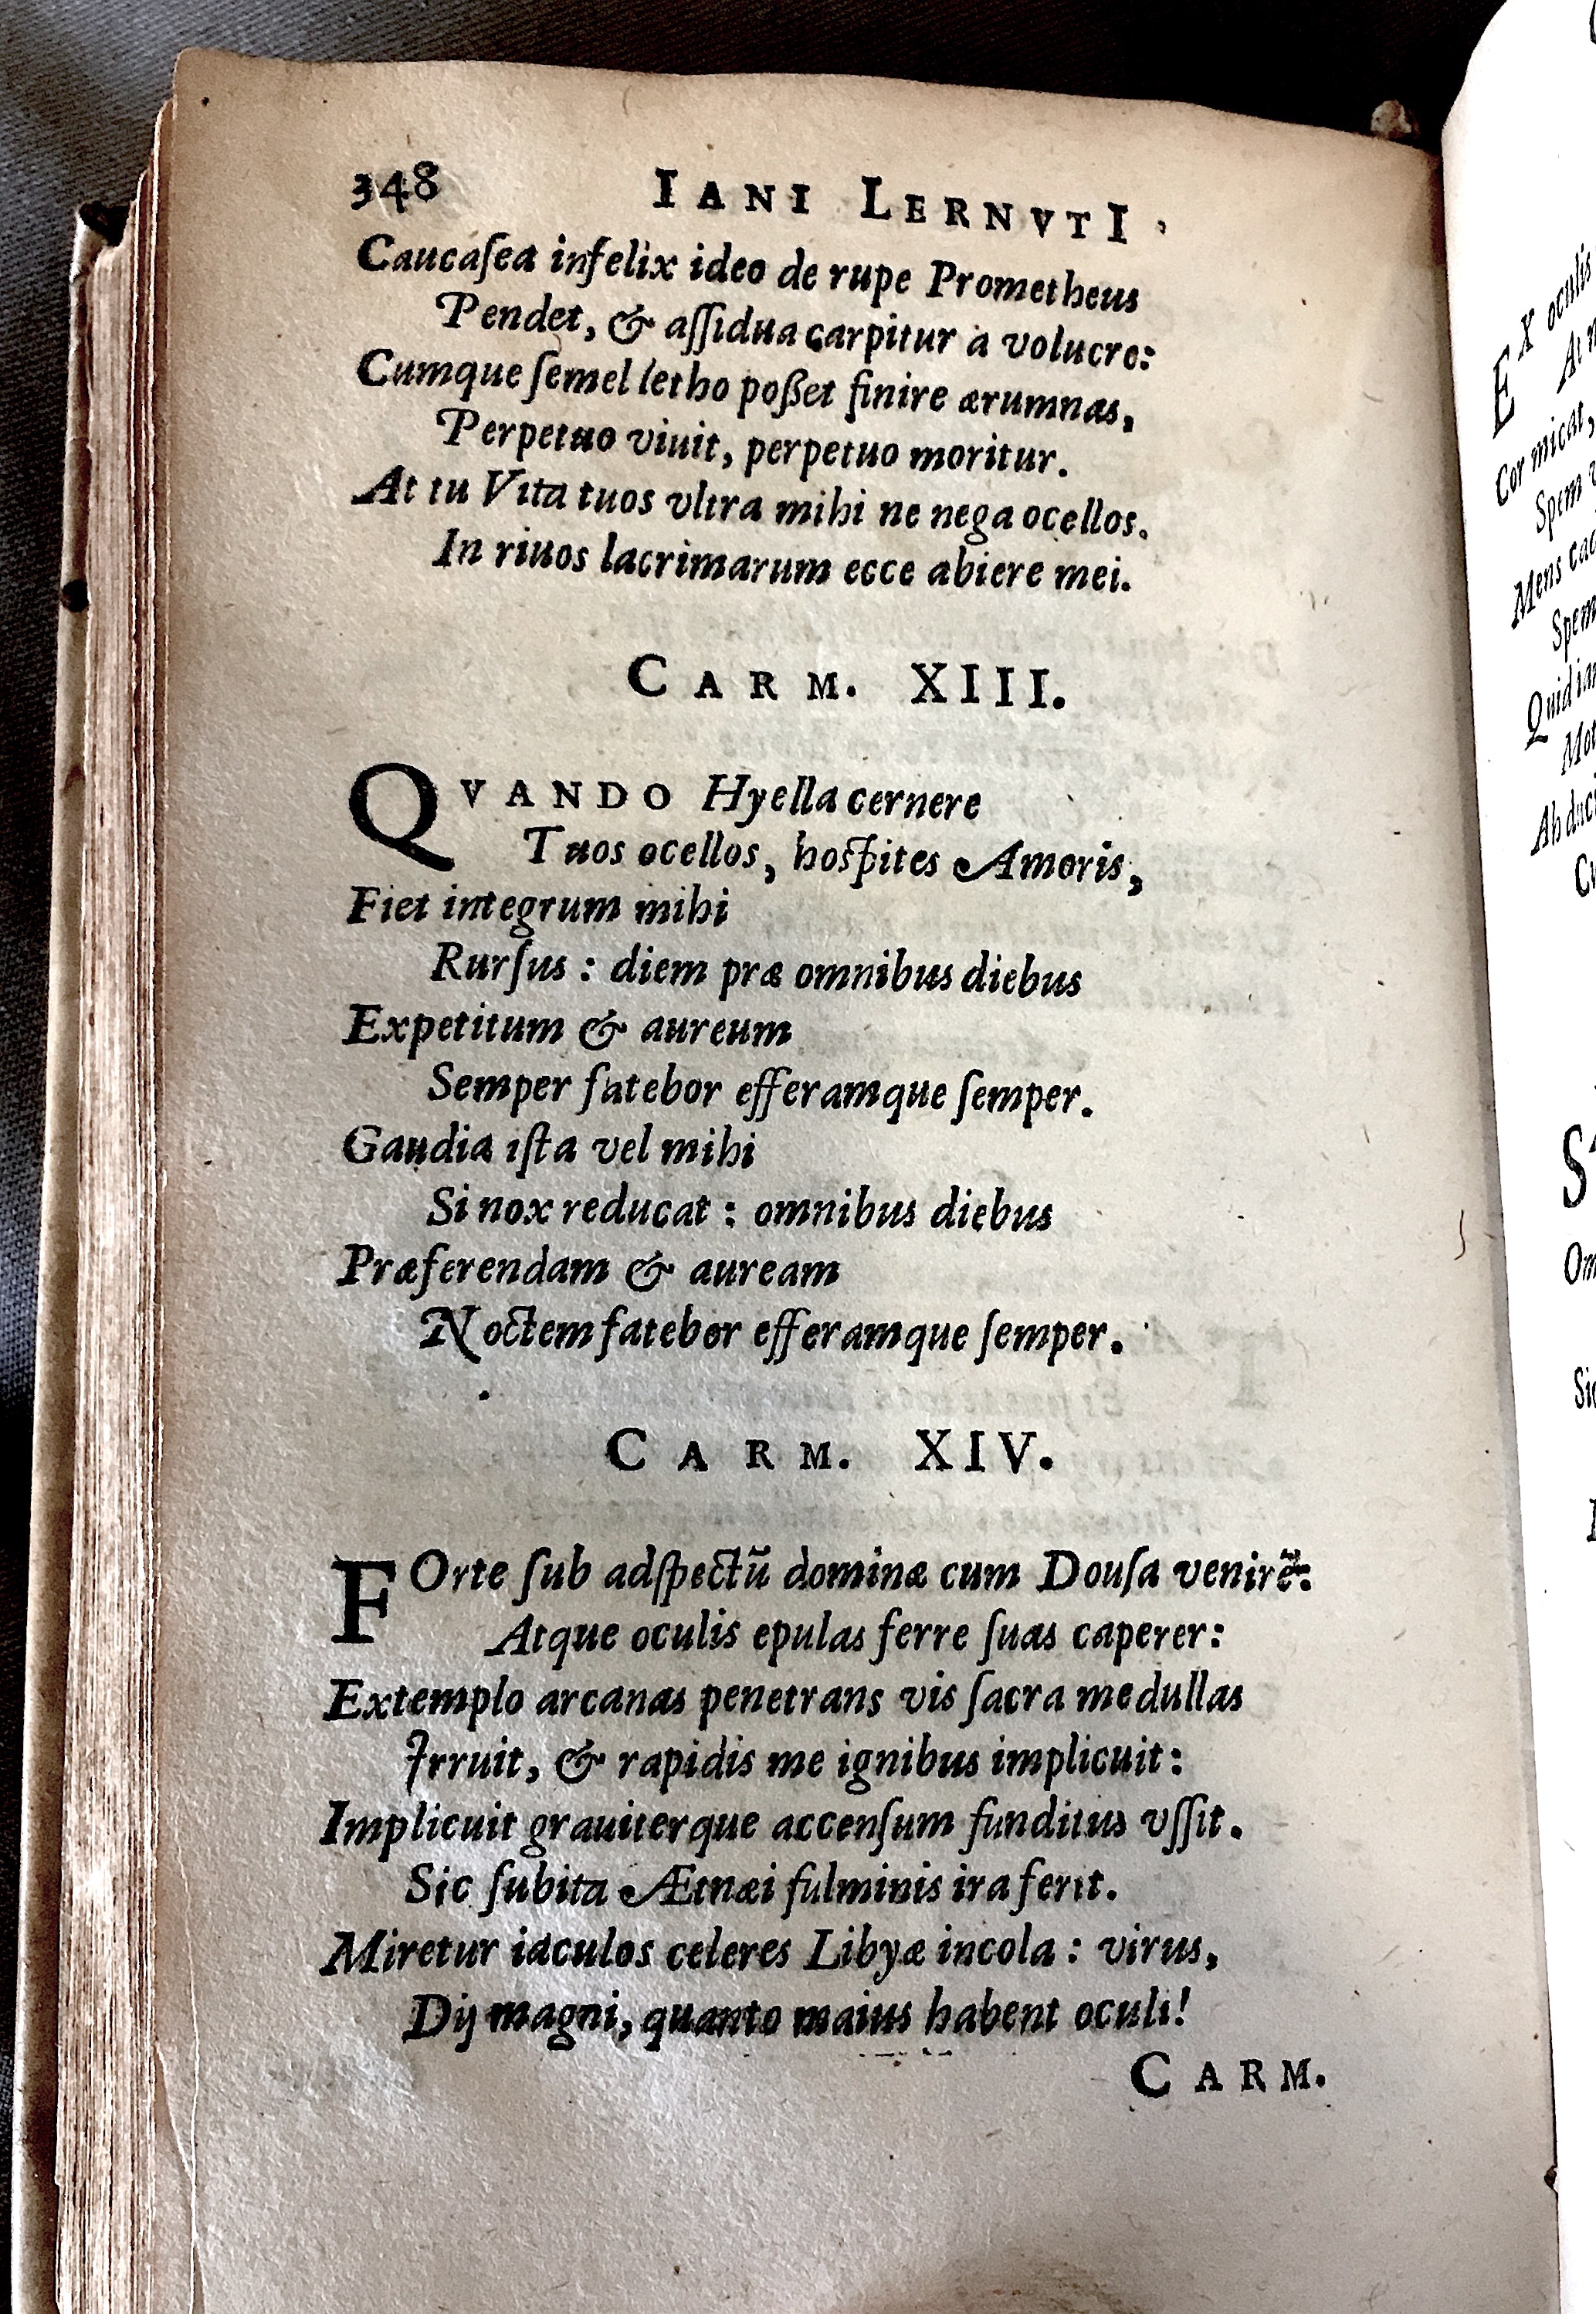 348 IANI LERNVTI
Caucaſea infelix ideo de rupe Prometheus
Pendet, & aſſidua carpitur à volucre:
Cumque ſemel letho poßet finire ærumnas,
Perpetuo viuit, perpetuo moritur.
At tu Vita tuos vltra mihi ne nega ocellos.
In riuos lacrimarum ecce abiere mei.
CARM. XIII.
QVANDO Hyella cernere
Tuos ocellos, hoſpites Amoris,
Fiet integrum mihi
Rurſus : diem præ omnibus diebus
Expetitum & aureum
Semper fatebor efferamque ſemper.
Gaudia iſta vel mihi
Si nox reducat : omnibus diebus
Præferendam & auream
Noctem fatebor efferamque ſemper.
CARM. XIV.
FOrte ſub adſpectū dominæ cum Douſa venirē:
Atque oculis epulas ferre ſuas caperer:
Extemplo arcanas penetrans vis ſacra medullas
Irruit, & rapidis me ignibus implicuit:
Implicuit grauiterque accenſum funditus vſſit.
Sic ſubita Ætnæi fulminis ira ferit.
Miretur iaculos celeres Libyæ incola : virus,
Dij magni, quanto maius habent oculi!
CARM.
EX oculis
At
Cor micat,
Spem
Mens
Spem